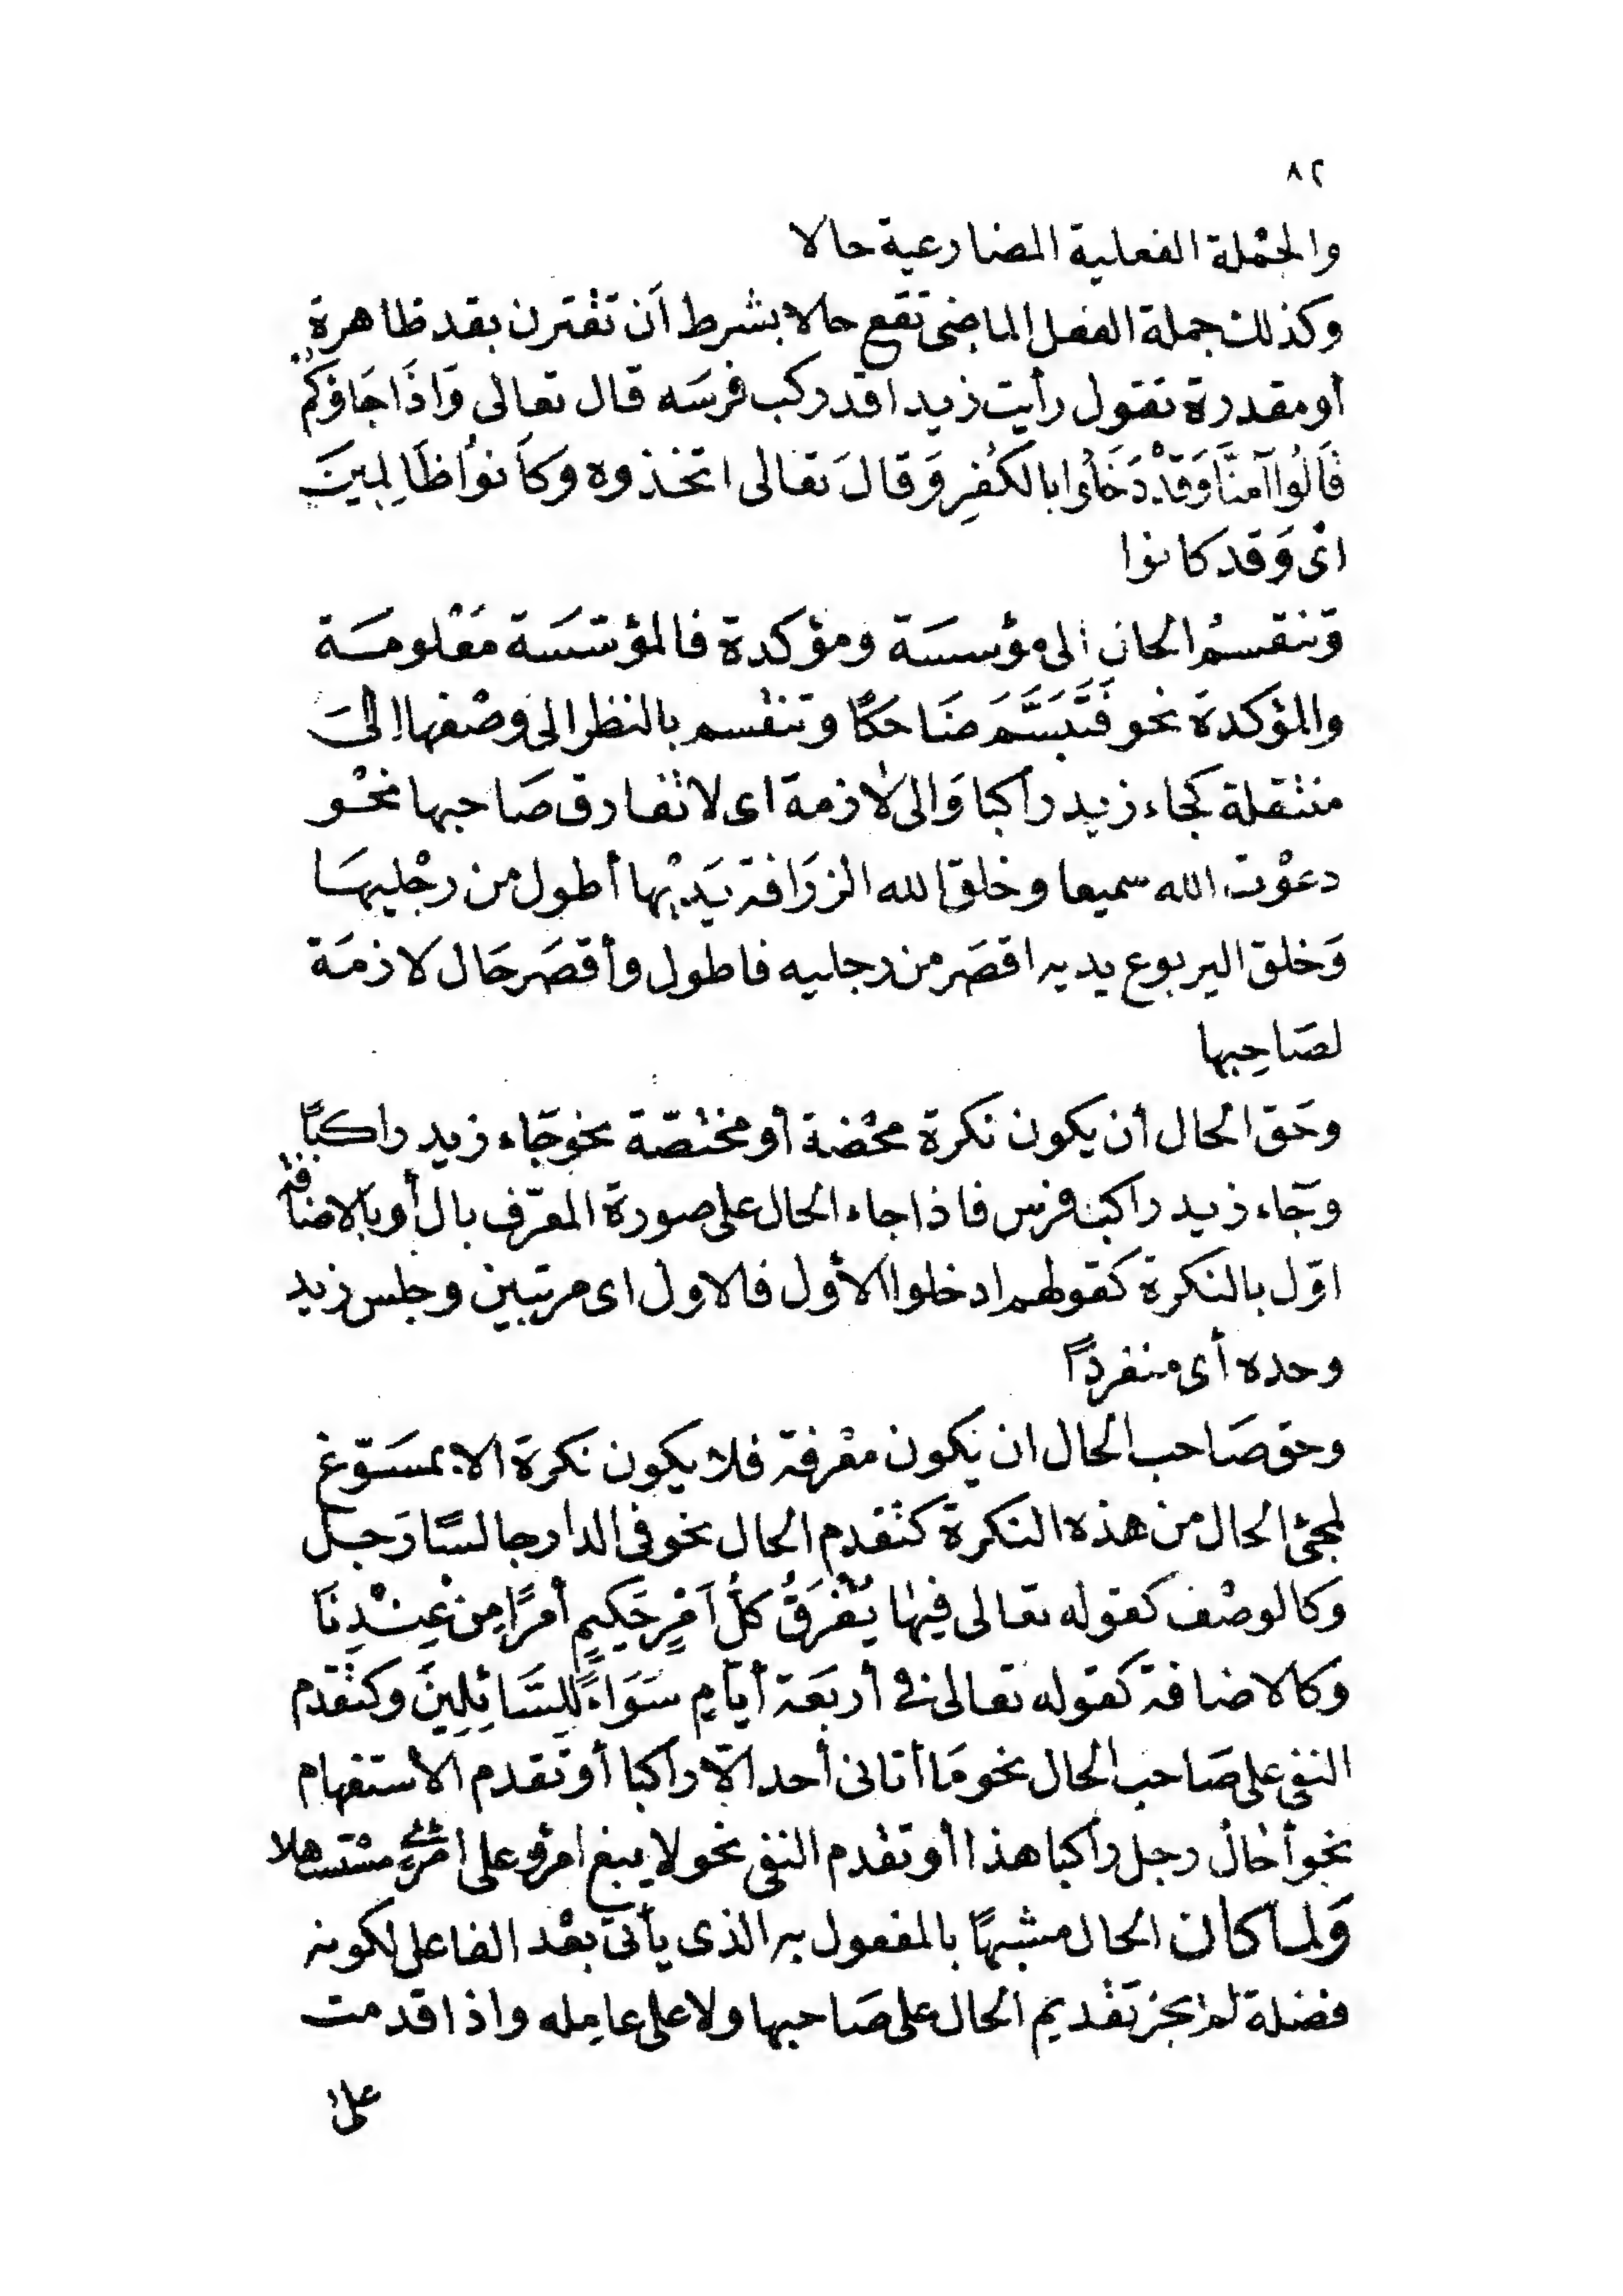 ٨٢
والجْملة الفعلية المضارعية حالا
وكذلك جملة الفعل الماضى تقع حالا بشرط أن تقْترن بقد ظاهرة
أو مقدرة تقول رأيت زيدا قد ركب فرسَه قال تعالى وَاذَا جَاؤكمُ
قَالُوا آمنَّا وَقَدْ دَخَلُوا بالكُفِر وَقالَ تعَالى اتخذوه وكاَنوُا ظَالِمينَ
اىْ وَقد كانوا
وَتنقسمُ الحال الى مؤسسَة ومؤكدة فالمؤسّسَة مَعْلومَة
والمؤكدَة نحو فَتَبَسَّمَ ضَاحكًا وتنقسم بالنظر الى وصْفها إلىَ
منتقلة كجاء زيد راكبا وَالى لازمة اى لا تفارق صَاحبها نحْو
دعوْت الله سميعا وخلق الله الزرَافة يَديْها أطول من رجْليهَا
وَخلق اليربوع يديه اقصَر من رجليه فاطول وأقصَر حَال لازمَة
لصَاحِبها
وحَق الحال أن يكون نكرة محْضة أو مختصّة نحو جَاء زيد راكبًا
وجَاء زيد راكب فرس فاذا جاء الحال على صورة المعرّف بال أو بالاضافة
اوّل بالنكرة كقولهم ادخلوا الأول فالاول اى مرتبين وجلس زيد
وحده أى منفردًا
وحق صَاحب الحال ان يكون معْرفة فلا يكون نكرة الا بمسَوّغ
لمجئ الحال من هذه النكرة كتقدم الحال نحو فى الدار جالسًا رَجل
وَكالوصْف كقوله تعالى فِيهَا يُفْرَقُ كلُّ اَمْرٍ حَكِيمٍ أمْرًا مِنْ عِنْدِنَا
وَكالاضافة كقوله تعالى فى أربَعَة أيّامٍ سَوَاءً لِلسَّائِلِينَ وكتقدم
النفى على صَاحب الحال نحو مَا أتانى أحد الّا راكبا أو تَقدم الأستفهام
نحو أخال رجل راكبا هذا أو تقدم النفى نحو لا يبغ امرؤ على امرئ مسْتسهلا
وَلما كان الحال مشبهًا بالمفعول به الذى يأتى بعْد الفاعل لكونه
فضلة لم يجز تقديم الحال على صَاحبها ولا على عامِله واذا قدمت
على